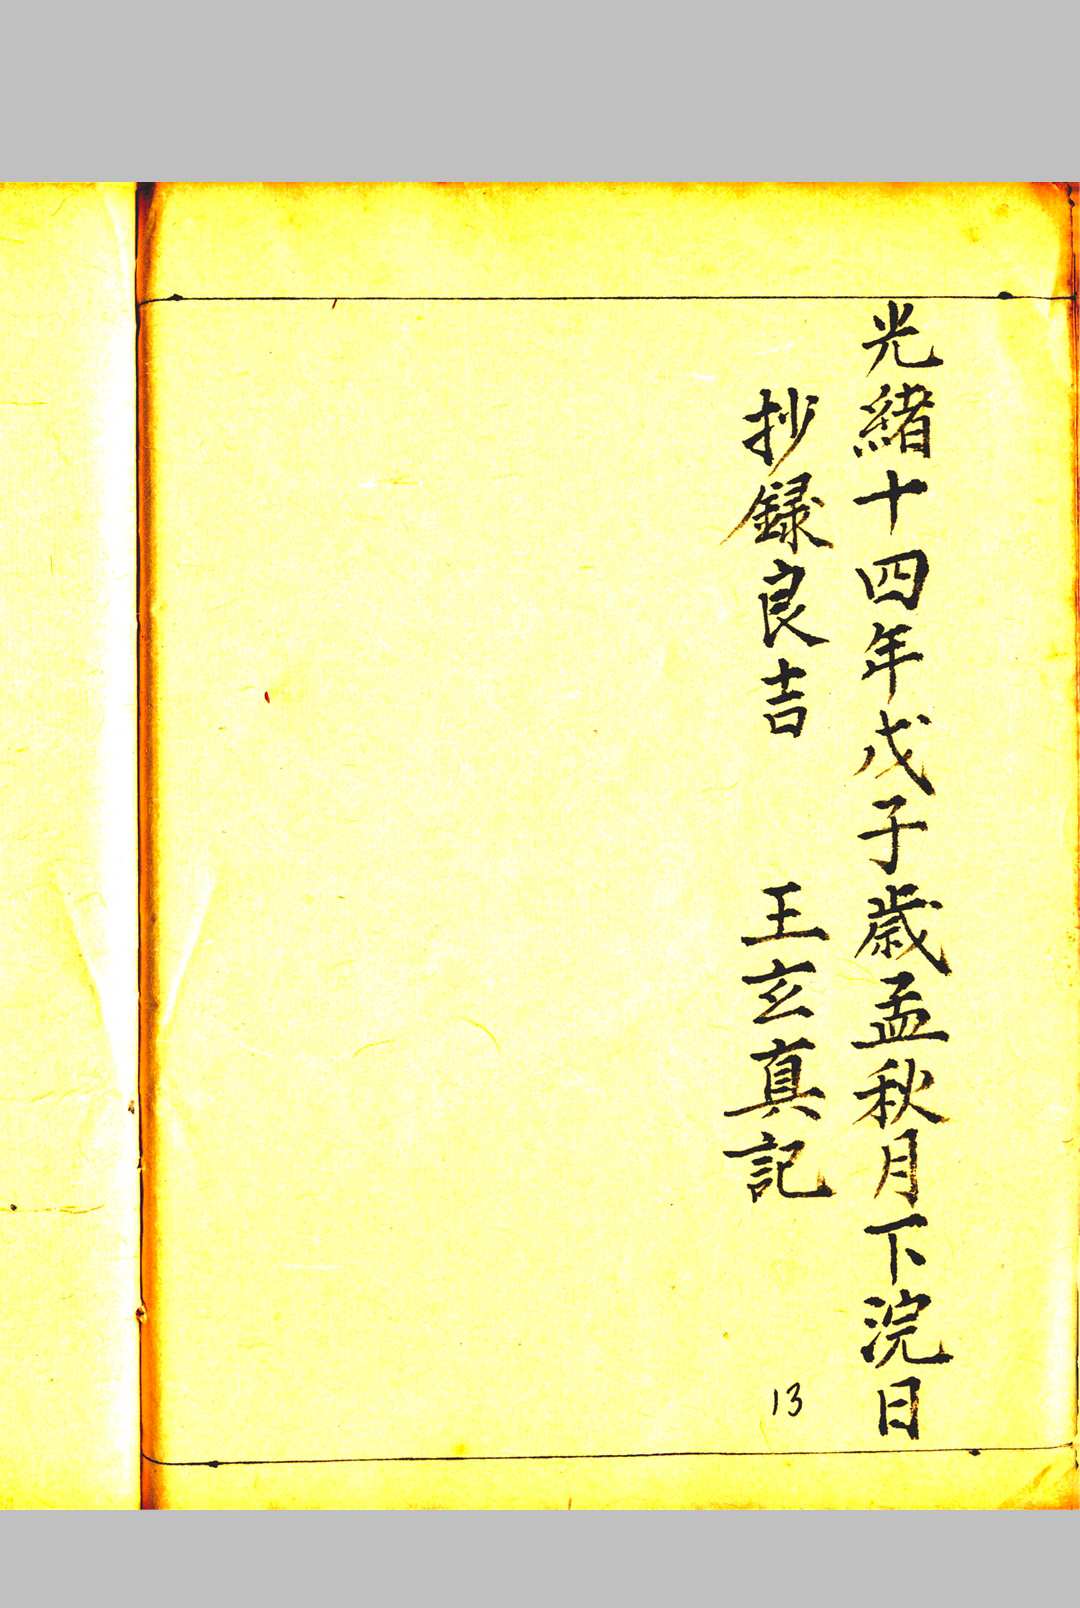 光緒十四年戊子歲孟秋月下浣日
抄録良吉 王玄真記
13